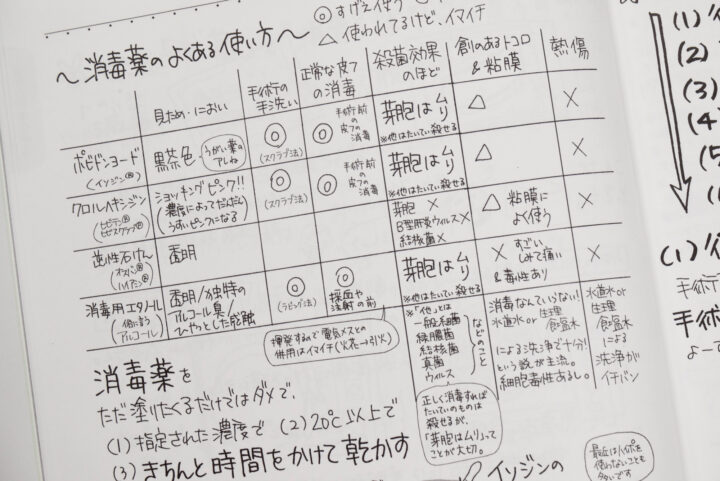 ◎ すげえ使う
△ 使われてるけど、イマイチ
～消毒薬のよくある使い方～
見ため・におい
手術の手洗い
正常な皮フの消毒
殺菌効果のほど
創のあるトコロ&粘膜
熱傷
ポビドンヨード
(イソジン®)
黒茶色
うがい薬のアレね
◎
(スクラブ法)
◎
手術前の皮フの消毒
芽胞はムリ
※他はたいてい殺せる
△
×
クロルヘキシジン
ショッキングピンク!!
(濃度によってだんだんうすいピンクになる)
◎
(スクラブ法)
◎
手術前の皮フの消毒
芽胞はムリ
※他はたいてい殺せる
△
×
逆性石けん
(オスバン®
ハイアミン®)
透明
芽胞×
B型肝炎ウイルス×
結核菌×
△ 粘膜によく使う
×
消毒用エタノール
透明/独特のアルコール臭/ひやっとした感触
◎
(ラビング法)
◎
採血や注射の前
芽胞はムリ
※他はたいてい殺せる
× すごいしみて痛い
&毒性あり
×
揮発するので電気メスとの
併用はイマイチ(火花→引火)
※「他」とは
一般細菌
緑膿菌
結核菌
真菌
ウイルス
などのこと
消毒なんていらない!
水道水or生理食塩水
による洗浄で十分!
という説が主流。
細胞毒性あるし。
水道水or
生理
食塩水
による
洗浄が
イチバン
正しく消毒すれば
たいていのものは
殺せるが、
「芽胞はムリ」って
ことが大切。
消毒薬を
ただ塗りたくるだけではダメで、
(1)指定された濃度で (2)20℃以上で
(3)きちんと時間をかけて乾かす
イソジンの
最近はハイポを
使わないことも
多いです
(1)
(2)
(3)
(4)
(1)
手術